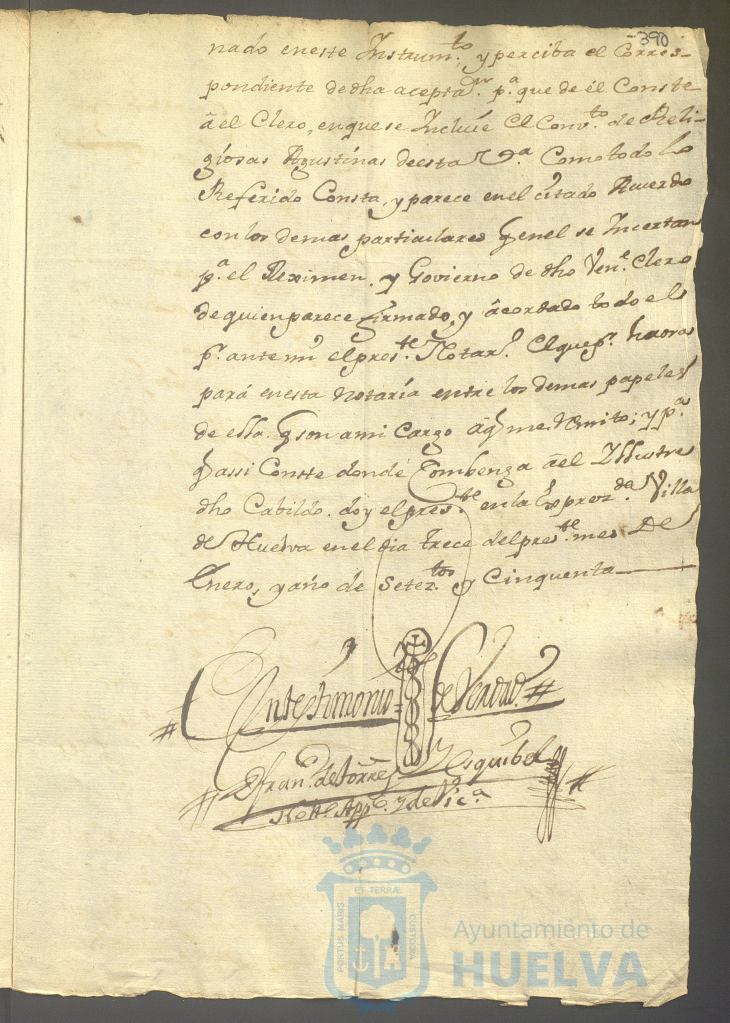 -390
nado eneste Instrum.to y perciba el Corres-
pondiente de dha acepta.on p.a que de él Conste
â el Clero, enque se Incluíe el Conv.to de Reli-
giosas Agustinas deesta V.a Comotodo lo
Referido Consta, y parece enel citado Acuerdo
con los demas particulares q enel se Incertan
p.a el Reximen, y Govierno de dho Ven.e Clero
de quien parece firmado, y âcordado todo ello
p.r ante mi el pres.te Notar.o El que p.r haora
pará enesta Notaría entre los demas papeles
de ella q son ami Cargo âq me remito; y p.a
q assi Conste donde Combenga âel Illustre
dho Cabildo doy el pres.te en la Exprez.da Villa
de Huelva en el dia trece del pres.te mes De
Enero, y año de Setez.tos y Cinquenta
En testimonio de Verdad
D. Fran.co de Torres Y Esquibel
Not.o App.co y de Vic.a
PORTUS MARIS
ET TERRÆ
CUSTODIA
Ayuntamiento de
HUELVA